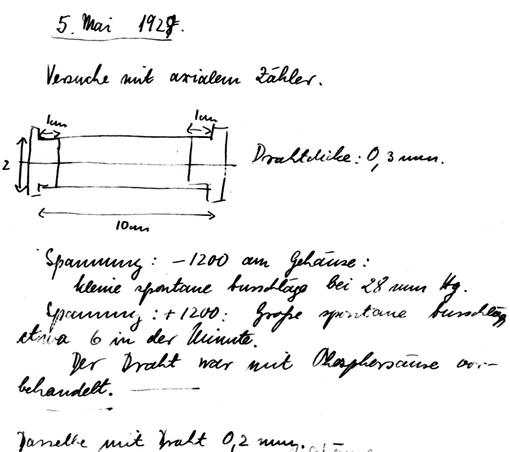 5. Mai 1928.
Versuche mit axialem Zähler.
1cm 1cm
2
Drahtdicke: 0,3 mm.
10cm
Spannung: -1200 am Gehäuse:
kleine spontane Ausschläge bei 28 mm Hg.
Spannung: +1200: Große spontane Ausschläge
etwa 6 in der Minute.
Der Draht war mit Phosphorsäure vor-
behandelt.
Dasselbe mit Draht 0,2 mm.